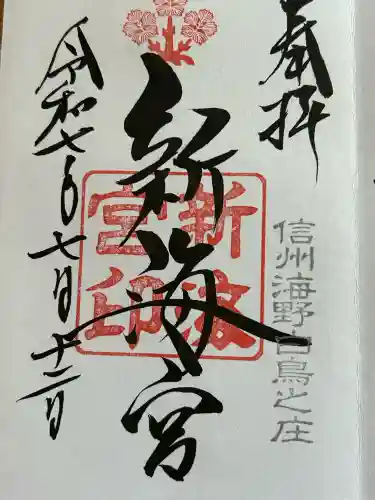 奉拝
信州海野白鳥之庄
新海宮
新
宮印
令和七年七月十二日